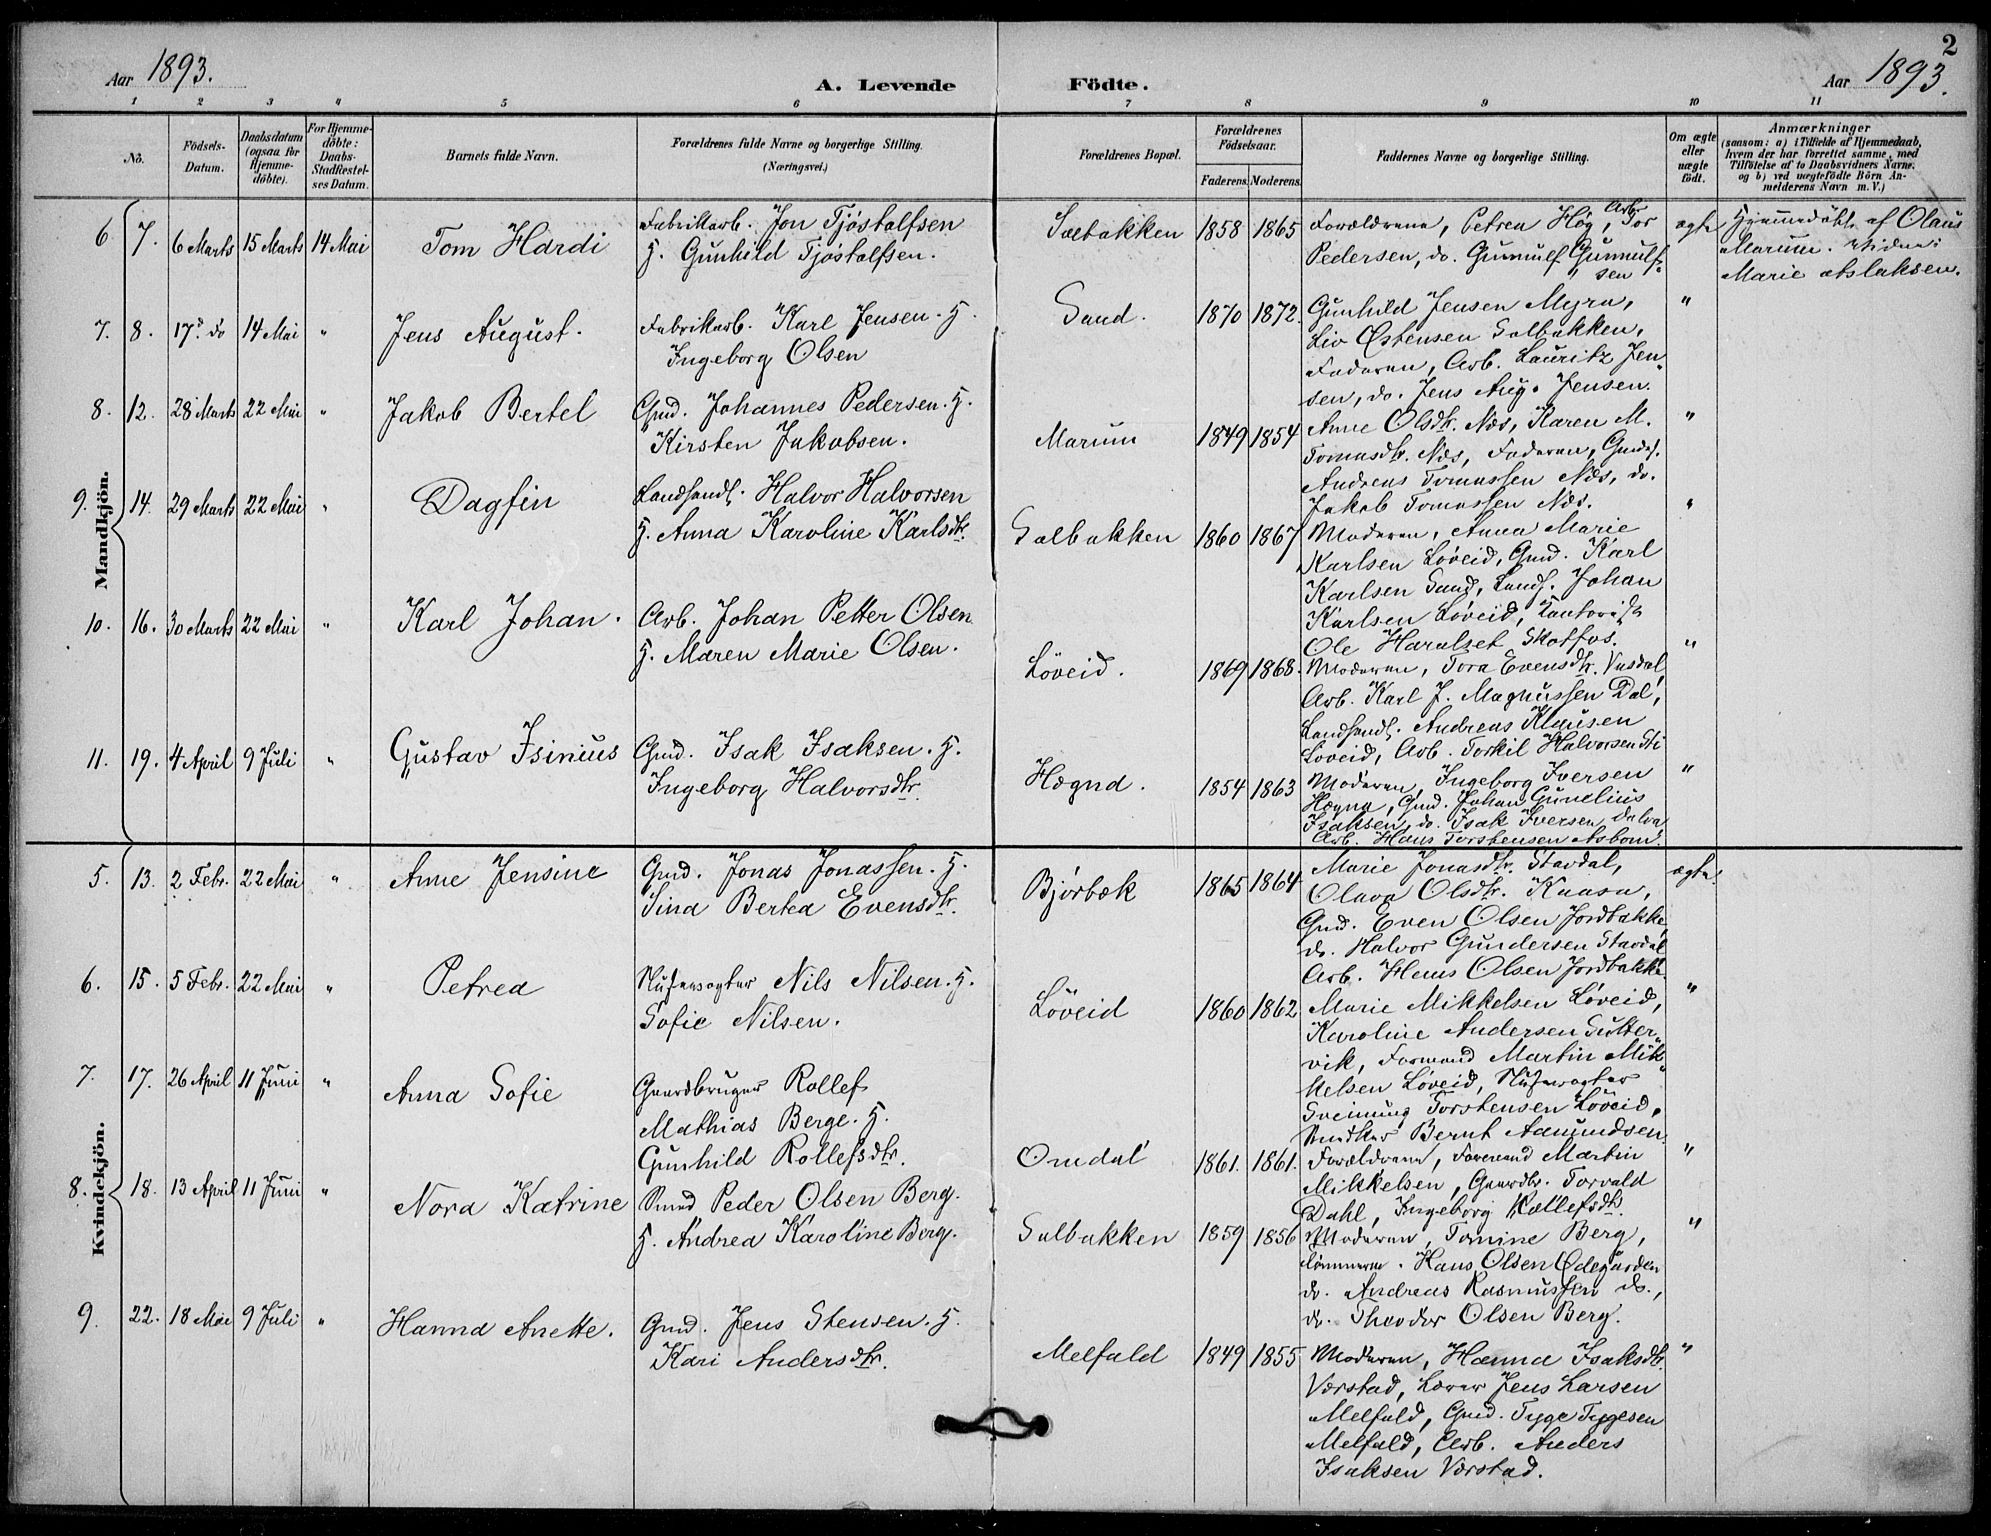 2
Aar 1893.
A. Levende
Födte.
Aar 1893.
1 2 3 4 5 6 7 8 9 10 11
No.
Födsels-
Datum.
Daabsdatum
(ogsaa for
Hjemme-
döbte).
For Hjemme-
döbte:
Daabs-
Stadfæstel-
ses Datum.
Barnets fulde Navn.
Forældrenes fulde Navne og borgerlige Stilling.
(Næringsvei.)
Forældrenes Bopæl.
Forældrenes
Födselsaar.
Faderens. Moderens.
Faddernes Navne og borgerlige Stilling.
Om ægte
eller
uægte
födt.
Anmærkninger
(saasom: a) i Tilfælde af Hjemmedaab,
hvem der har forrettet samme, med
Tilföielse af to Daabsvidners Navne,
og b) ved uægtefödte Börn An-
melderens Navn m. V.)
Mandkjön.
6. 7. 6 Marts 15 Marts 14 Mai Tom Hardi
Fabrikarb. Jon Tjöstolfsen
H. Gunhild Tjöstolfsen.
Solbakken 1858 1865
Forældrene, Petrea Hög, Arb. Tor
Pedersen, do. Gunnulf Gunnulf-
sen
ægte
Hjemmedöbt af Olaus
Marum. Vidne:
Marie Aslaksen.
7. 8. 17. do 14 Mai " Jens August.
Fabrikarb. Karl Jensen. H.
Ingeborg Olsen
Sand. 1870 1872.
Gunhild Jensen Myra,
Liv Østensen Solbakken,
Faderen, Arb. Lauritz Jen-
sen, do. Jens Aug. Jensen.
"
8. 12. 28 Marts 22 Mai " Jakob Bertel
Gmd. Johannes Pedersen. H.
Kirsten Jakobsen.
Marum 1849 1854
Anne Olsdtr. Næs, Karen M.
Tomasdtr. Næs, Faderen, Gmd.
Andreas Tomassen Næs, do.
Jakob Tomassen Næs.
"
9. 14. 29 Marts 22 Mai " Dagfin
Landhandl. Halvor Halvorsen
H. Anna Karoline Karlsdtr.
Solbakken 1860 1867
Moderen, Anna Marie
Karlsen Löveid, Gmd. Karl
Karlsen Sand, Landh. Johan
Karlsen Löveid,
Ole Haralset Skotfos.
"
10. 16. 30 Marts 22 Mai " Karl Johan.
Arb. Johan Petter Olsen
H. Maren Marie Olsen.
Löveid. 1869 1868.
Moderen, Tora Evensdtr. Vasdal,
Arb. Karl J. Magnussen Dal,
Landhandl. Andreas Klausen
Löveid, Arb. Torkil Halvorsen Sti
"
11. 19. 4 April 9 Juli " Gustav Isinius
Gmd. Isak Isaksen. H.
Ingeborg Halvorsdtr.
Högnd. 1854 1863
Moderen, Ingeborg Iversen
Högna, Gmd. Johan Gunelius
Isaksen, do. Isak Iversen
Arb. Hans Torstensen Asbom.
"
Kvindekjön.
5. 13. 2 Febr. 22 Mai " Anne Jensine
Gmd. Jonas Jonassen. H.
Sina Bertea Evensdtr.
Bjørbæk 1865 1864
Marie Jonasdtr. Stavdal,
Olava Olsdtr. Kaasa,
Gmd. Even Olsen Jordbakke,
do. Halvor Gundersen Stavdal
Arb. Hans Olsen Jordbakke
ægte.
6. 15. 5 Febr. 22 Mai " Petrea
Slusevogter Nils Nilsen. H.
Sofie Nilsen.
Löveid 1860 1862
Marie Mikkelsen Löveid,
Karoline Andersen Sulter-
vik, Formand Martin Mik-
kelsen Löveid, Slusevogter
Sveinung Torstensen Löveid,
Snedker Bernt Aamundsen
"
7. 17. 26 April 11 Juni " Anna Sofie
Gaardbruger Rollef
Mathias Berge. H.
Gunhild Rollefsdtr.
Omdal 1861. 1861.
Forældrene, Formand Martin
Mikkelsen, Gaardbr. Torvald
Dahl, Ingeborg Rollefsdtr.
"
8. 18. 13 April 11 Juni " Nora Katrine
Smed Peder Olsen Berg.
H. Andrea Karoline Berg.
Solbakken 1859 1856
Moderen, Tomine Berg,
Tømmerm. Hans Olsen Ødegaarden
do. Andreas Rasmussen do.,
do. Theodor Olsen Berg.
"
9. 22. 18 Mai 9 Juli " Hanna Anette.
Gmd. Jens Stensen. H.
Kari Andersdtr.
Melfald 1849 1855
Moderen, Hanna Isaksdtr.
Værstad, Lærer Jens Larsen
Melfald, Gmd. Tyge Tygesen
Melfald, Arb. Anders
Isaksen Værstad.
"